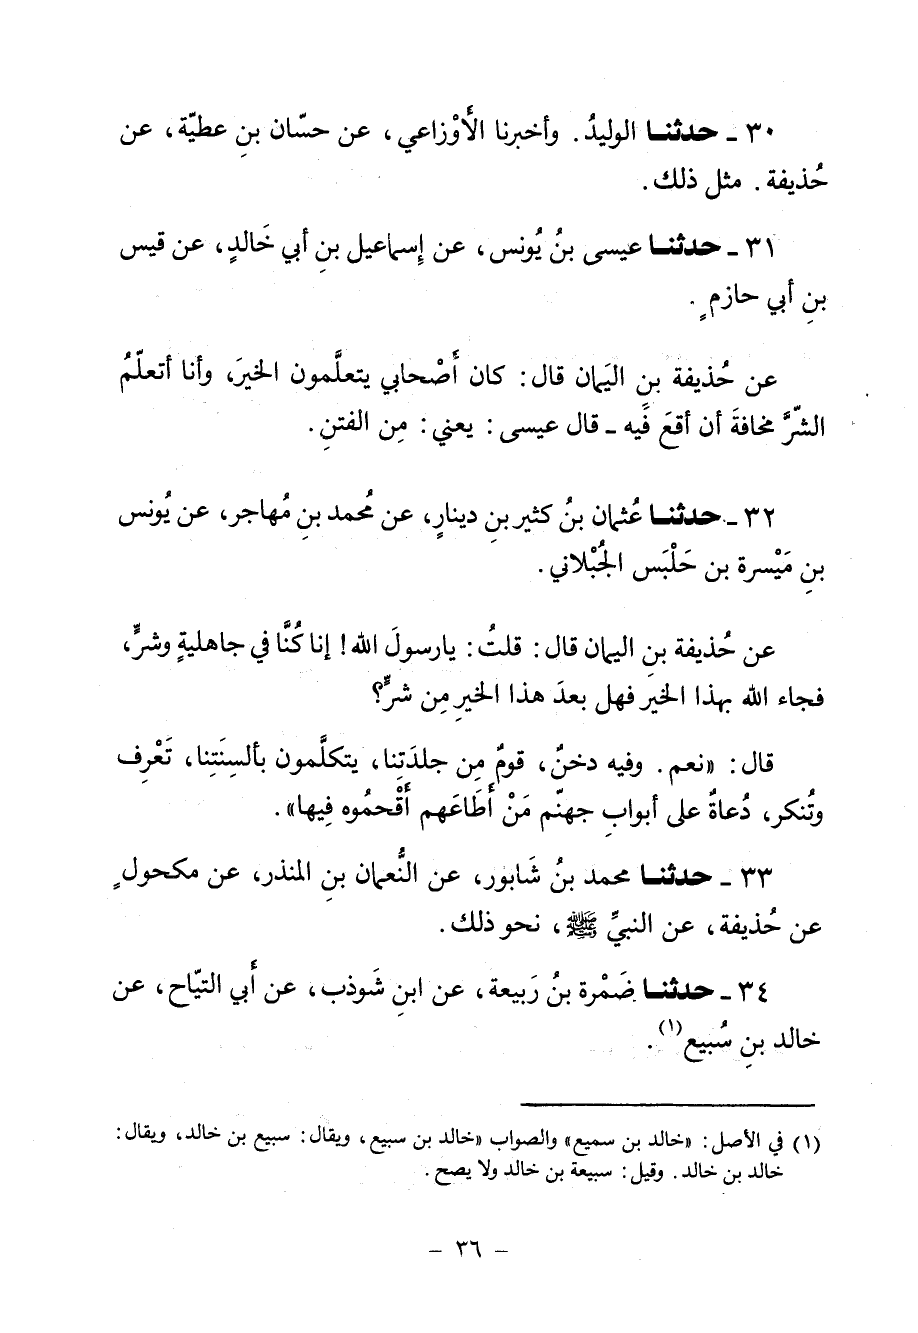 ٣٠ ـ حدثنـا الوليدُ. وأخبرنا الأَوْزاعي، عن حسّان بنِ عطيّة، عن
حُذيفة. مثل ذلك.
٣١ ـ حدثنـا عيسى بنُ يُونس، عن إسماعيل بنِ أبي خَالدٍ، عن قيس
بنِ أبي حازمٍ.
عن حُذيفة بنِ اليَمان قال: كان أَصْحابي يتعلَّمون الخيرَ، وأنا أتعلّمُ
الشّرَّ مخافةَ أن أقعَ فيه ـ قال عيسى: يعني: مِن الفتنِ.
٣٢ ـ حدثنـا عُثمان بنُ كثير بنِ دينارٍ، عن مُحمد بنِ مُهاجر، عن يُونس
بنِ مَيْسرة بن حَلْبَس الجُبْلاني.
عن حُذيفة بنِ اليمان قال: قلتُ: يارسولَ الله! إنا كُنَّا في جاهليةٍ وشرٍّ،
فجاء الله بهذا الخير فهل بعدَ هذا الخيرِ مِن شرٍّ؟
قال: «نعم. وفيه دخنٌ، قومٌ مِن جلدَتِنا، يتكلَّمون بألسِنَتِنا، تَعْرِف
وتُنكر، دُعاةٌ على أبوابِ جهنّم مَنْ أَطَاعَهم أَقْحمُوه فِيها».
٣٣ ـ حدثنـا محمد بنُ شَابور، عن النُّعمان بنِ المنذر، عن مكحولٍ
عن حُذيفة، عن النبيِّ ﷺ، نحو ذلك.
٣٤ ـ حدثنـا ضَمْرة بنُ رَبيعة، عن ابنِ شَوذب، عن أَبي التيّاح، عن
خالد بنِ سُبيع(١).
(١) في الأصل: «خالد بن سميع» والصواب «خالد بن سبيع، ويقال: سبيع بن خالد، ويقال:
خالد بن خالد. وقيل: سبيعة بن خالد ولا يصح.
– ٣٦ –